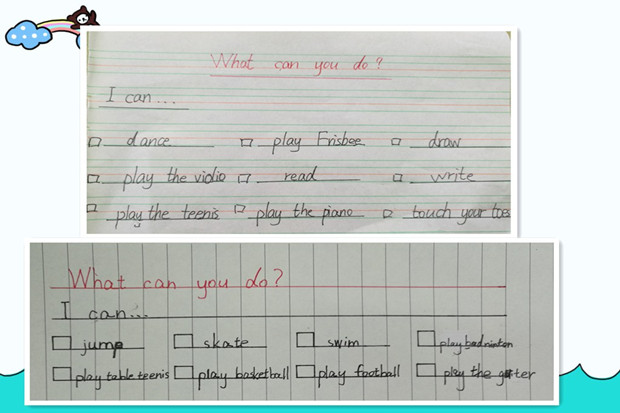 What can you do?
I can...
dance play Frisbee draw
play the vidio read write
play the teenis play the piano touch your toes
What can you do?
I can...
jump skate swim play badninton
play table teenis play basketball play football play the